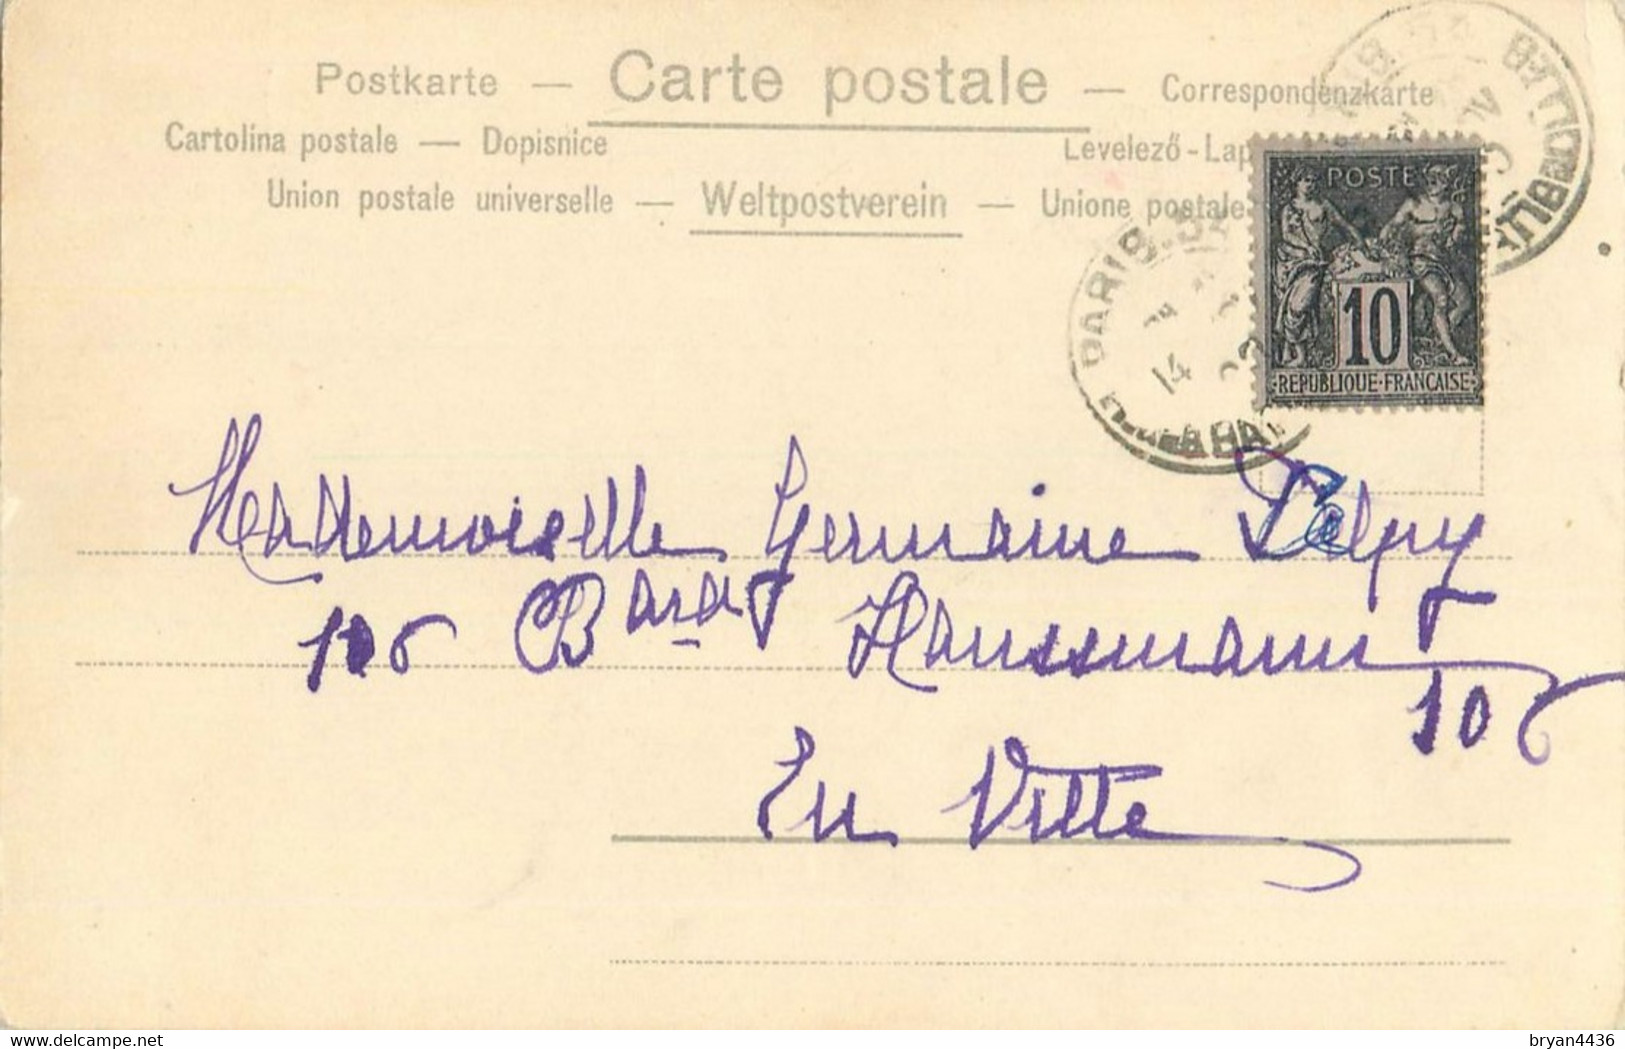 Postkarte — Carte postale — Correspondenzkarte
Cartolina postale — Dopisnice Levelező-Lap
Union postale universelle — Weltpostverein — Unione postale
POSTE
10
REPUBLIQUE·FRANCAISE
PARIS
14
Mademoiselle Germaine
106 Bard Haussmann
106
En Ville
www.delcampe.net
bryan4436